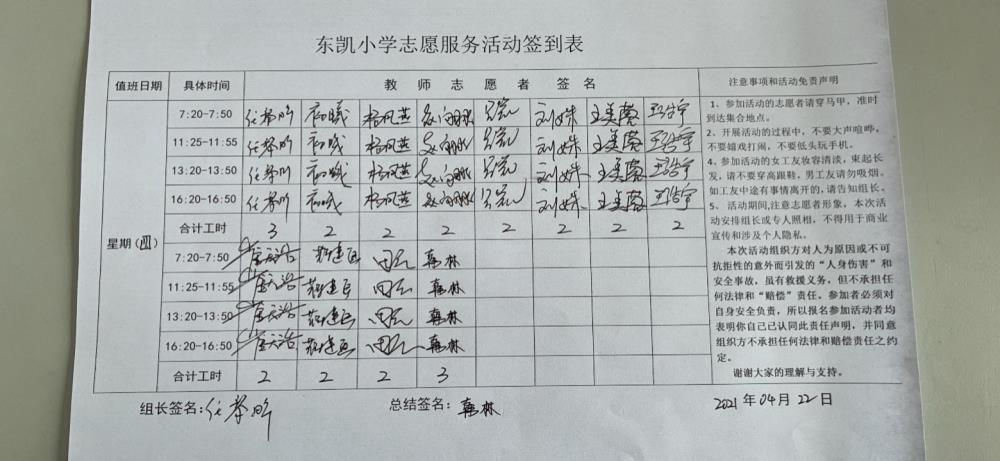 东凯小学志愿服务活动签到表
值班日期 具体时间 教师志愿者签名 注意事项和活动免责声明
7:20-7:50 初曦 杨凤芝 刘姝 王美蓉 王浩宇
11:25-11:55 初曦 杨凤芝 刘姝 王美蓉 王浩宇
13:20-13:50 初曦 杨凤芝 刘姝 王美蓉 王浩宇
16:20-16:50 初曦 杨凤芝 刘姝 王美蓉 王浩宇
星期(四)
合计工时 3 2 2 2 2 2 2 2
7:20-7:50 韩林
11:25-11:55 韩林
13:20-13:50 韩林
16:20-16:50 韩林
合计工时 2 2 2 3
1、参加活动的志愿者请穿马甲,准时
到达集合地点。
2、开展活动的过程中,不要大声喧哗,
不要嬉戏打闹,不要低头玩手机。
4、参加活动的女工友妆容清淡,束起长
发,请不要穿高跟鞋,男工友请勿吸烟。
如工友中途有事情离开的,请告知组长。
5、 活动期间,注意志愿者形象,本次活
动安排组长或专人照相,不得用于商业
宣传和涉及个人隐私。
本次活动组织方对人为原因或不可
抗拒性的意外而引发的“人身伤害”和
安全事故,虽有救援义务,但不承担任
何法律和“赔偿”责任。参加者必须对
自身安全负责,所以报名参加活动者均
表明你自己已认同此责任声明,并同意
组织方不承担任何法律和赔偿责任之约
定。
谢谢大家的理解与支持。
组长签名: 总结签名: 韩林 2021年04月22日